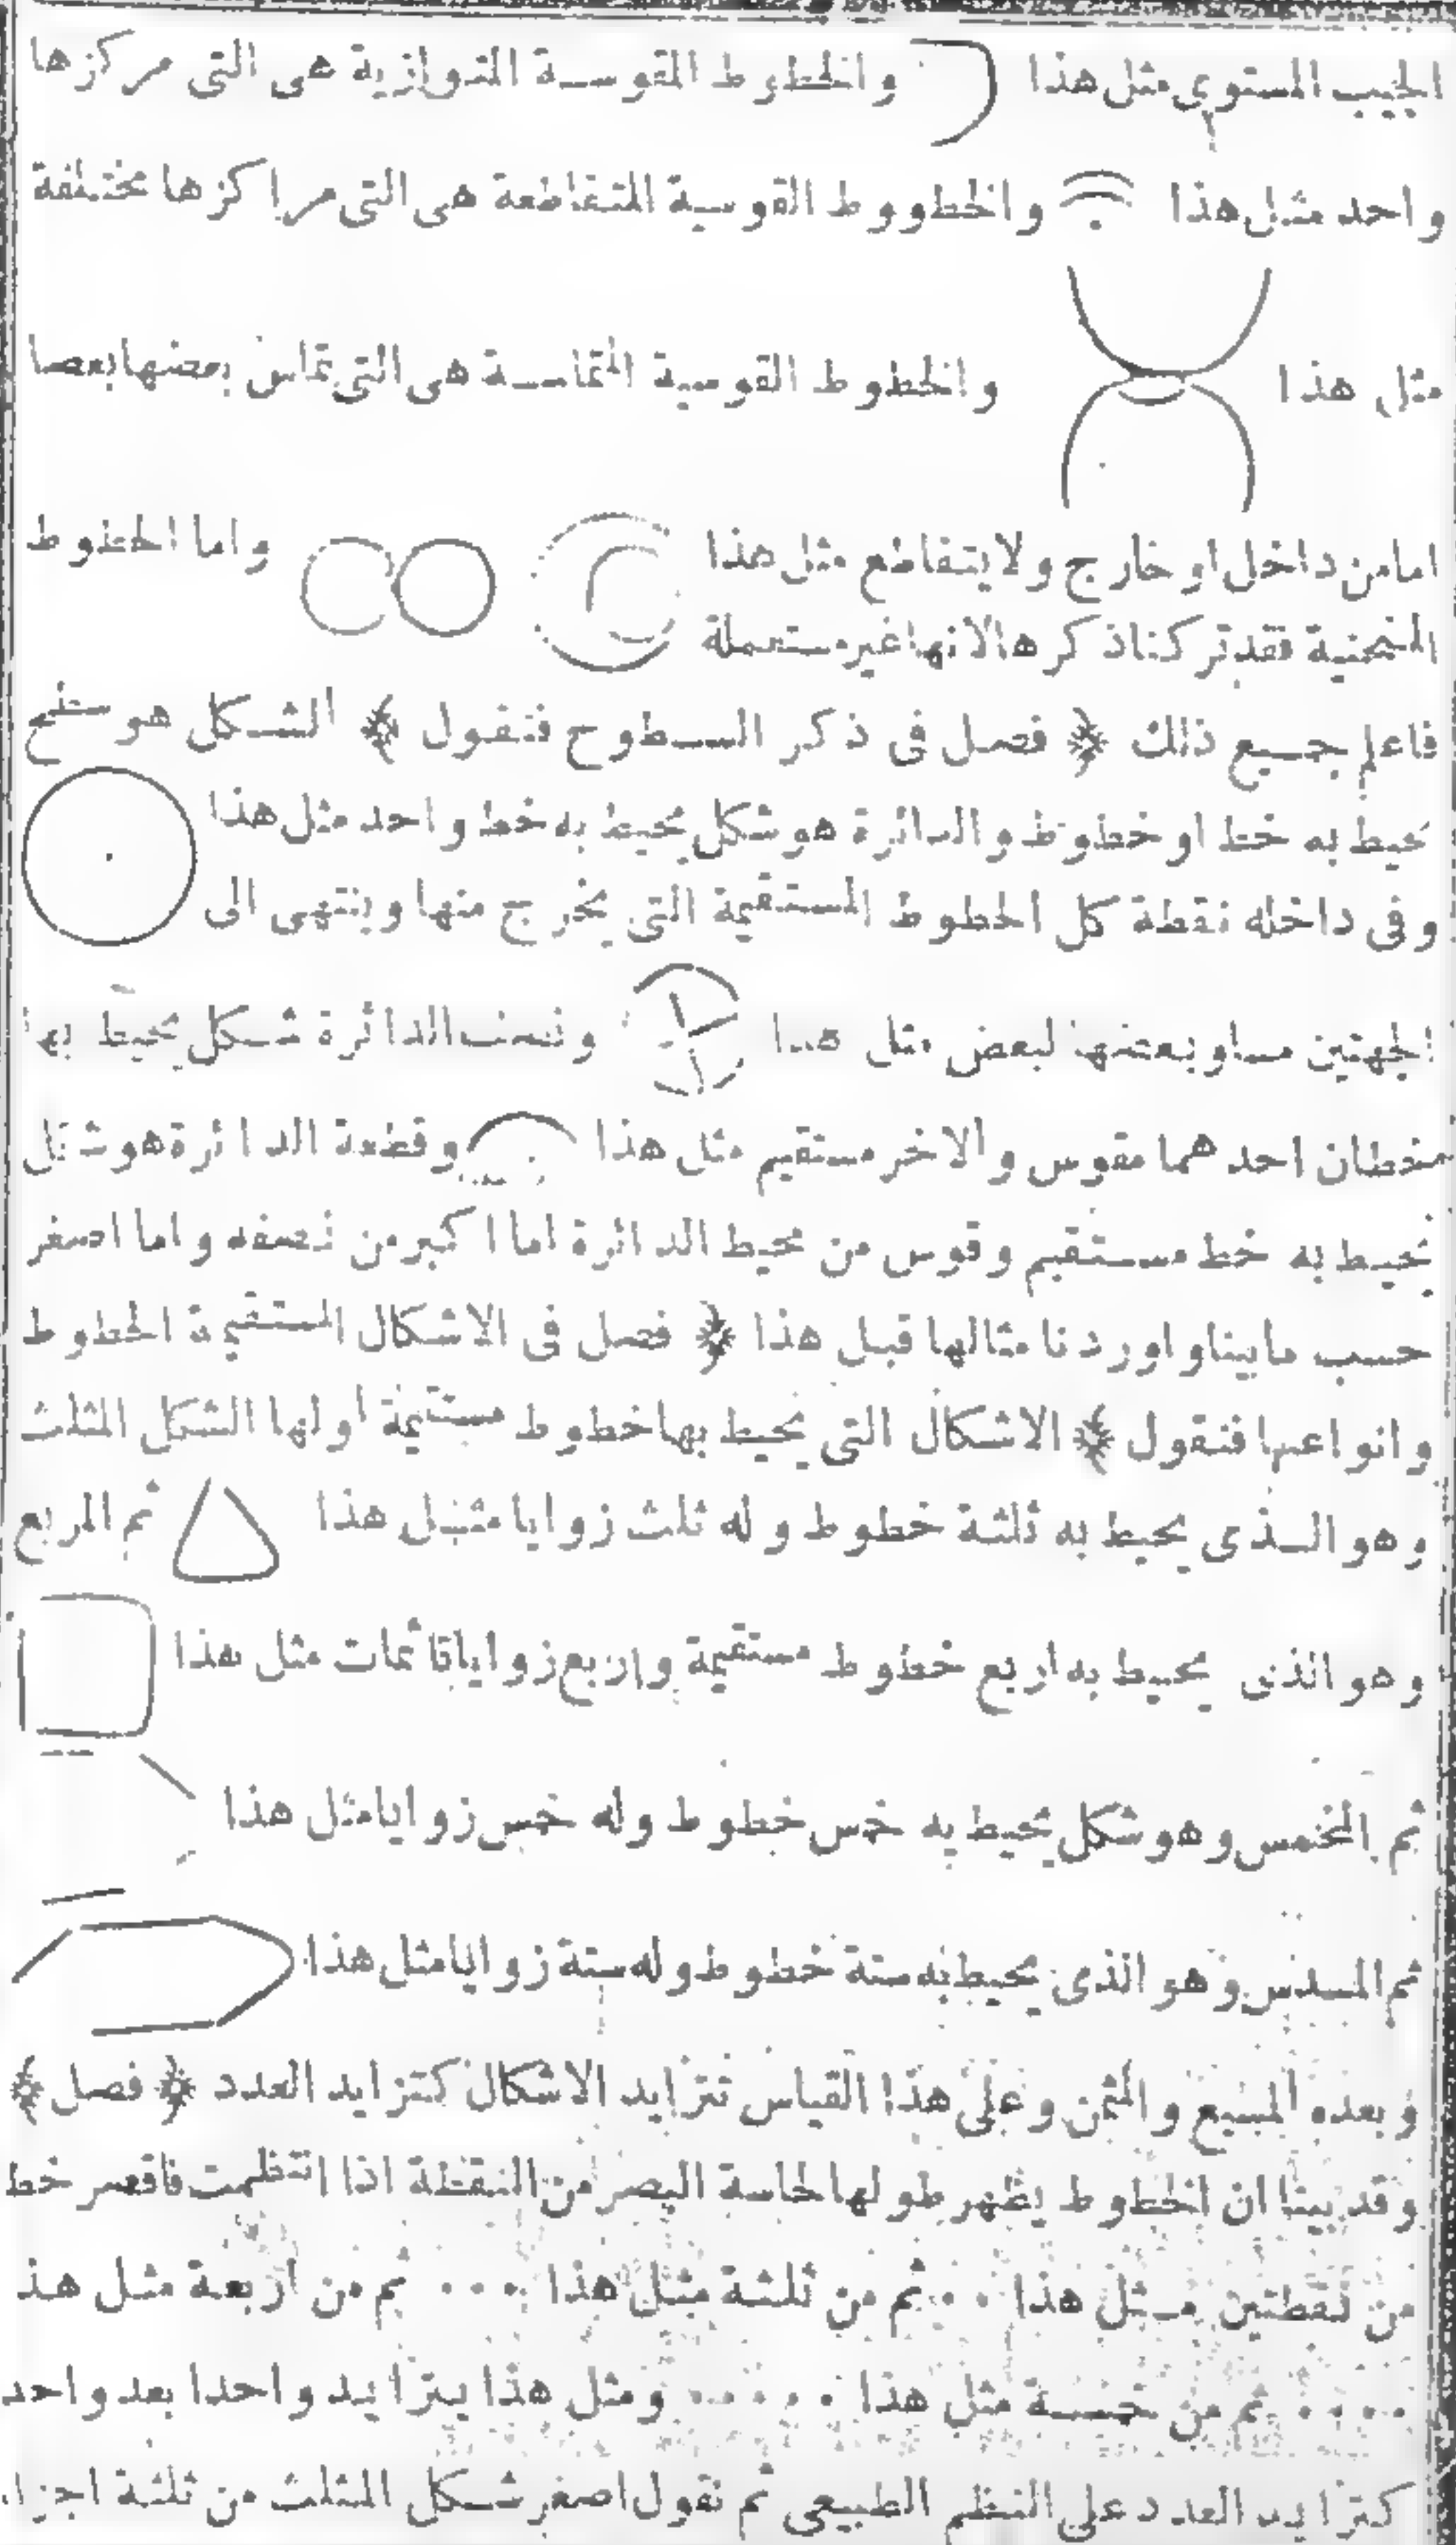 الجيب المستوى مثل هذا واالخطوط المقوسة المتوازية هى التى مركزها
واحد مثل هذا والخطووط القوسية المتقاطعة هى التى مراكزها مختلفة
مثل هذا والخطوط القوسية المتماسة هى التى تماس بعضها بعصا
اما من داخل او خارج ولا يتقاطع مثل هذا واما الخطوط
المنحنية فقد تركنا ذكرها لانها غير مستعملة
فاعلم جميع ذلك ﴿ فصل فى ذكر السطوح فنقول ﴾ الشكل هو سطح
يحيط به خط او خطوط والدائرة هو شكل يحيط به خط واحد مثل هذا
وفى داخله نقطة كل الخطوط المستقيمة التى يخرج منها وينتهى الى
الجهتين مساو بعضها لبعض مثل هذا ونصف الدائرة شكل يحيط بها
خطان احدهما مقوس والاخر مستقيم مثل هذا وقطعة الدائرة هو شكل
يحيط به خط مستقيم وقوس من محيط الدائرة اما اكبر من نصفه واما اصغر
حسب ما بينا واوردنا مثالها قبل هذا ﴿ فصل فى الاشكال المستقيمة الخطوط
وانواعها فنقول ﴾ الاشكال التى يحيط بها خطوط مستقيمة اولها الشكل المثلث
وهو الذى يحيط به ثلثة خطوط وله ثلث زوايا مثل هذا ثم المربع
وهو الذى يحيط به اربع خطوط مستقيمة واربع زوايا قائمات مثل هذا
ثم المخمس وهو شكل يحيط به خمس خطوط وله خمس زوايا مثل هذا
ثم المسدس وهو الذى يحيط به ستة خطوط وله ستة زوايا مثل هذا
وبعده المسبع والمثمن وعلى هذا القياس تتزايد الاشكال كتزايد العدد ﴿ فصل ﴾
وقد بينا ان الخطوط يظهر طولها لحاسة البصر من النقطة اذا انتظمت فاقصر خط
من نقطتين مثل هذا ٠٠ ثم من ثلثة مثل هذا ٠٠٠ ثم من اربعة مثل هذ
٠٠٠٠ ثم من خمسة مثل هذا ٠٠٠٠٠ ومثل هذا يتزايد واحدا بعد واحد
كتزايد العدد على النظم الطبيعى ثم نقول اصغر شكل المثلث من ثلثة اجزاء